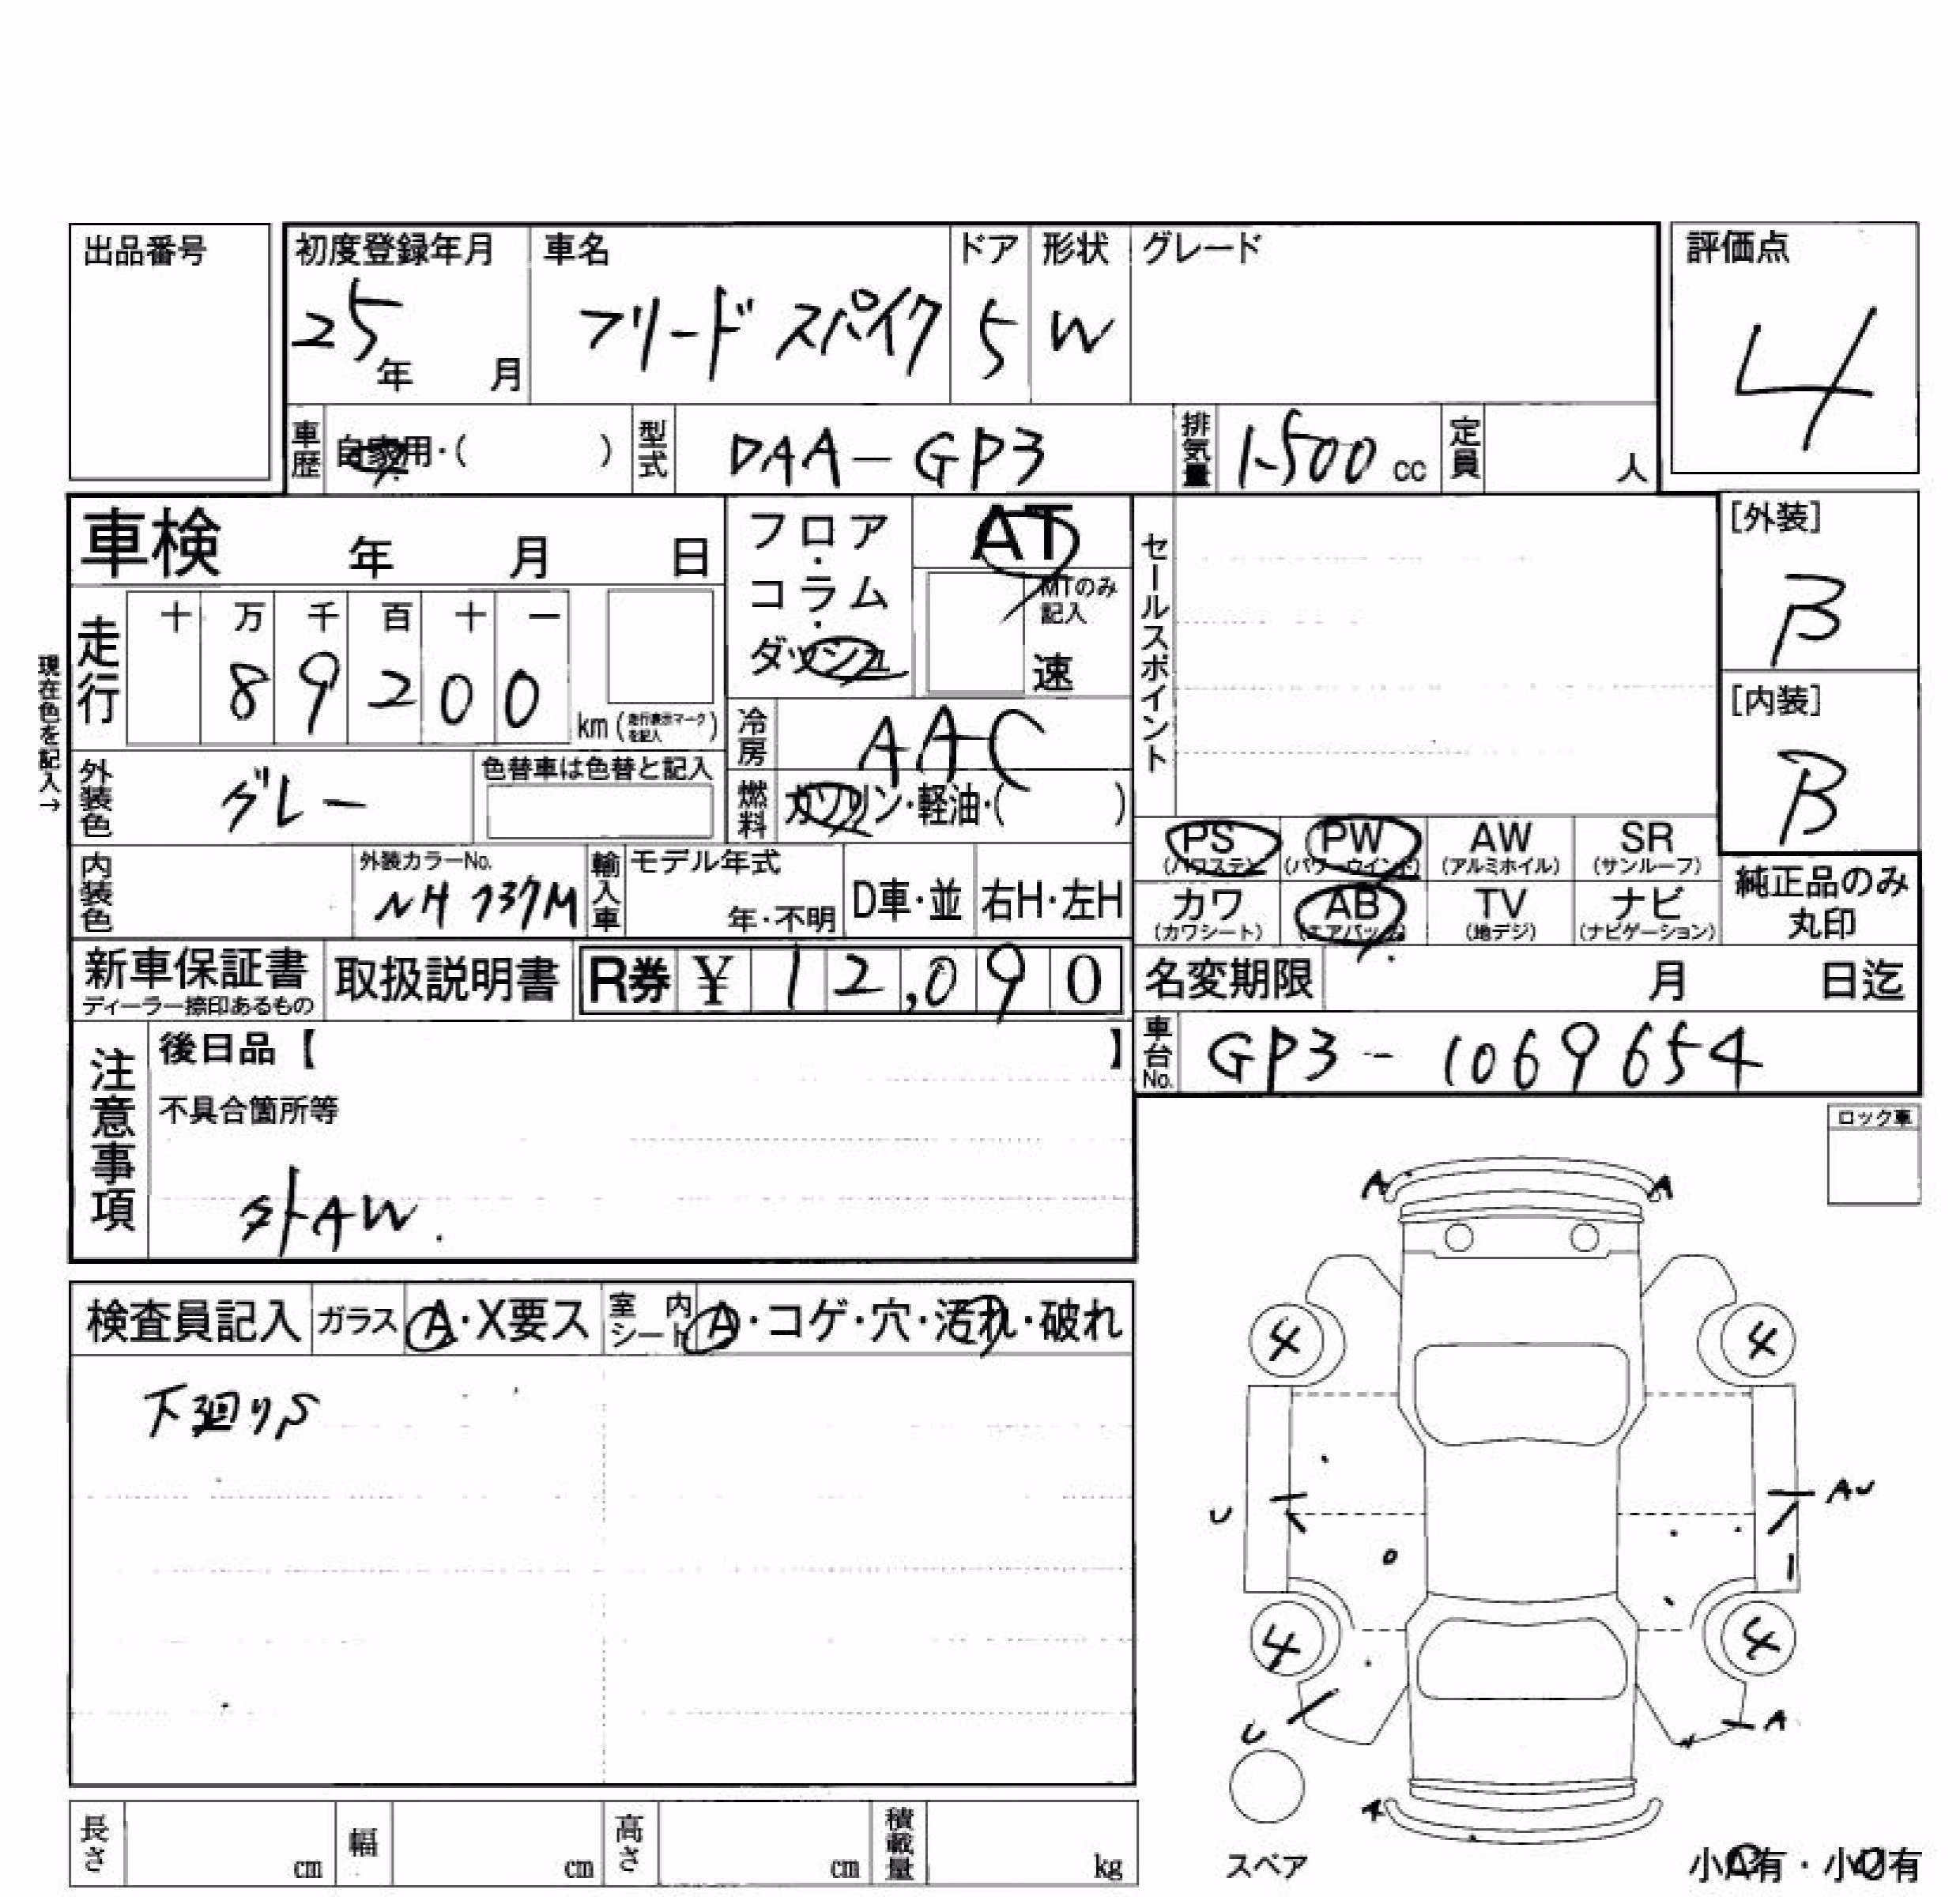 出品番号
初度登録年月 車名 ドア 形状 グレード 評価点
25年 月 フリード スパイク 5 W 4
車歴 自家用・( ) 型式 DAA-GP3 排気量 1500 cc 定員 人
車検 年 月 日
フロア・コラム・ダッシュ
AT
MTのみ記入
速
セールスポイント
[外装]
B
[内装]
B
現在色を記入→
走行 十 万 千 百 十 一
8 9 2 0 0 km (走行表示マークを記入)
冷房 AAC
外装色 グレー 色替車は色替と記入
燃料 ガソリン・軽油・( )
PS (パワステ) PW (パワーウインド) AW (アルミホイル) SR (サンルーフ)
カワ (カワシート) AB (エアバック) TV (地デジ) ナビ (ナビゲーション)
純正品のみ
丸印
内装色 外装カラーNo. NH737M 輸入車 モデル年式 年・不明 D車・並 右H・左H
新車保証書 取扱説明書 R券 ¥ 12,090
ディーラー捺印あるもの
名変期限 月 日迄
車台No. GP3-1069654
注意事項
後日品【 】
不具合箇所等
外AW.
ロック車
検査員記入 ガラス A・X要ス 室内シート A・コゲ・穴・汚れ・破れ
下廻りS
A A
4 4
U AU
4 4
U A
A
スペア
小A有・小U有
長さ cm 幅 cm 高さ cm 積載量 kg